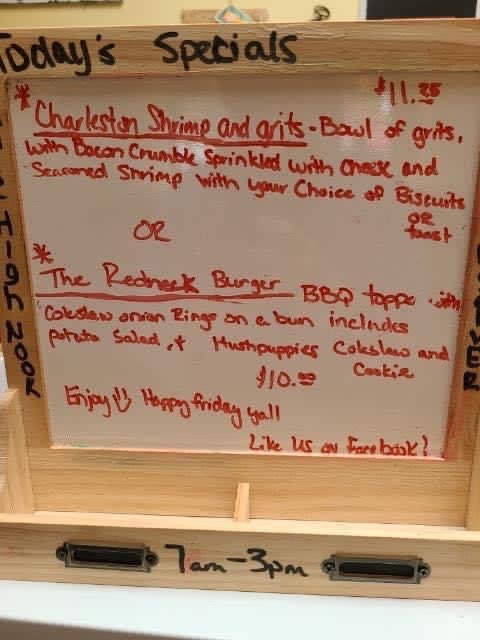 Today's Specials
$11.25
* Charleston Shrimp and grits - Bowl of grits,
with Bacon Crumble Sprinkled with Cheese and
Seasoned Shrimp with your Choice of Biscuits
OR
toast
OR
* The Redneck Burger BBQ toppe with
Coleslaw onion Rings on a bun includes
potato Salad, + Hushpuppies Coleslaw and
Cookie
$10.00
Enjoy Happy friday yall
Like Us on Facebook!
HIGH NOOK
VER
7am-3pm